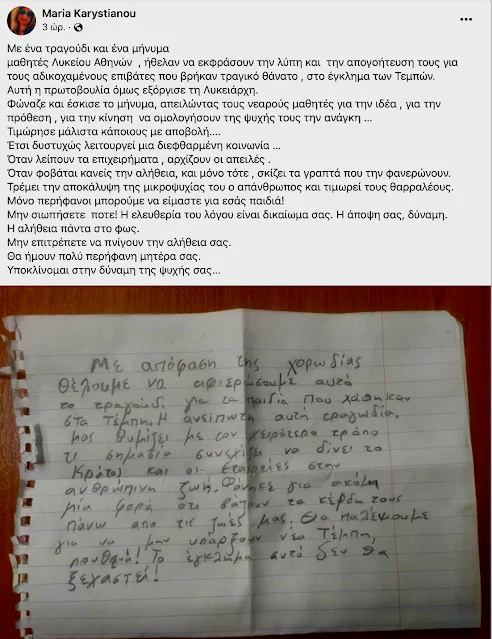 Maria Karystianou
3 ώρ.
Με ένα τραγούδι και ένα μήνυμα
μαθητές Λυκείου Αθηνών , ήθελαν να εκφράσουν την λύπη και την απογοήτευση τους για
τους αδικοχαμένους επιβάτες που βρήκαν τραγικό θάνατο , στο έγκλημα των Τεμπών.
Αυτή η πρωτοβουλία όμως εξόργισε τη Λυκειάρχη.
Φώναζε και έσκισε το μήνυμα, απειλώντας τους νεαρούς μαθητές για την ιδέα , για την
πρόθεση , για την κίνηση να ομολογήσουν της ψυχής τους την ανάγκη ...
Τιμώρησε μάλιστα κάποιους με αποβολή....
Έτσι δυστυχώς λειτουργεί μια διεφθαρμένη κοινωνία ...
Όταν λείπουν τα επιχειρήματα , αρχίζουν οι απειλές .
Όταν φοβάται κανείς την αλήθεια, και μόνο τότε , σκίζει τα γραπτά που την φανερώνουν.
Τρέμει την αποκάλυψη της μικροψυχίας του ο απάνθρωπος και τιμωρεί τους θαρραλέους.
Μόνο περήφανοι μπορούμε να είμαστε για εσάς παιδιά!
Μην σιωπήσετε ποτε! Η ελευθερία του λόγου είναι δικαίωμα σας. Η άποψη σας, δύναμη.
Η αλήθεια πάντα στο φως.
Μην επιτρέπετε να πνίγουν την αλήθεια σας.
Θα ήμουν πολύ περήφανη μητέρα σας.
Υποκλίνομαι στην δύναμη της ψυχής σας...
Με απόφαση της χορωδίας
θέλουμε να αφιερώσουμε αυτό
το τραγούδι για τα παιδιά που χάθηκαν
στα Τέμπη. Η ανείπωτη αυτή τραγωδία,
μας θυμίζει με τον χειρότερο τρόπο
τι σημασία συνεχίζει να δίνει το
Κράτος και οι εταιρείες στην
ανθρώπινη ζωή. Φάνηκε για ακόμη
μία φορά ότι βάζουν τα κέρδη τους
πάνω απο τις ζωές μας. Θα παλέψουμε
για να μην υπάρξουν νέα Τέμπη,
πουθενά! Το έγκλημα αυτό δεν θα
ξεχαστεί!